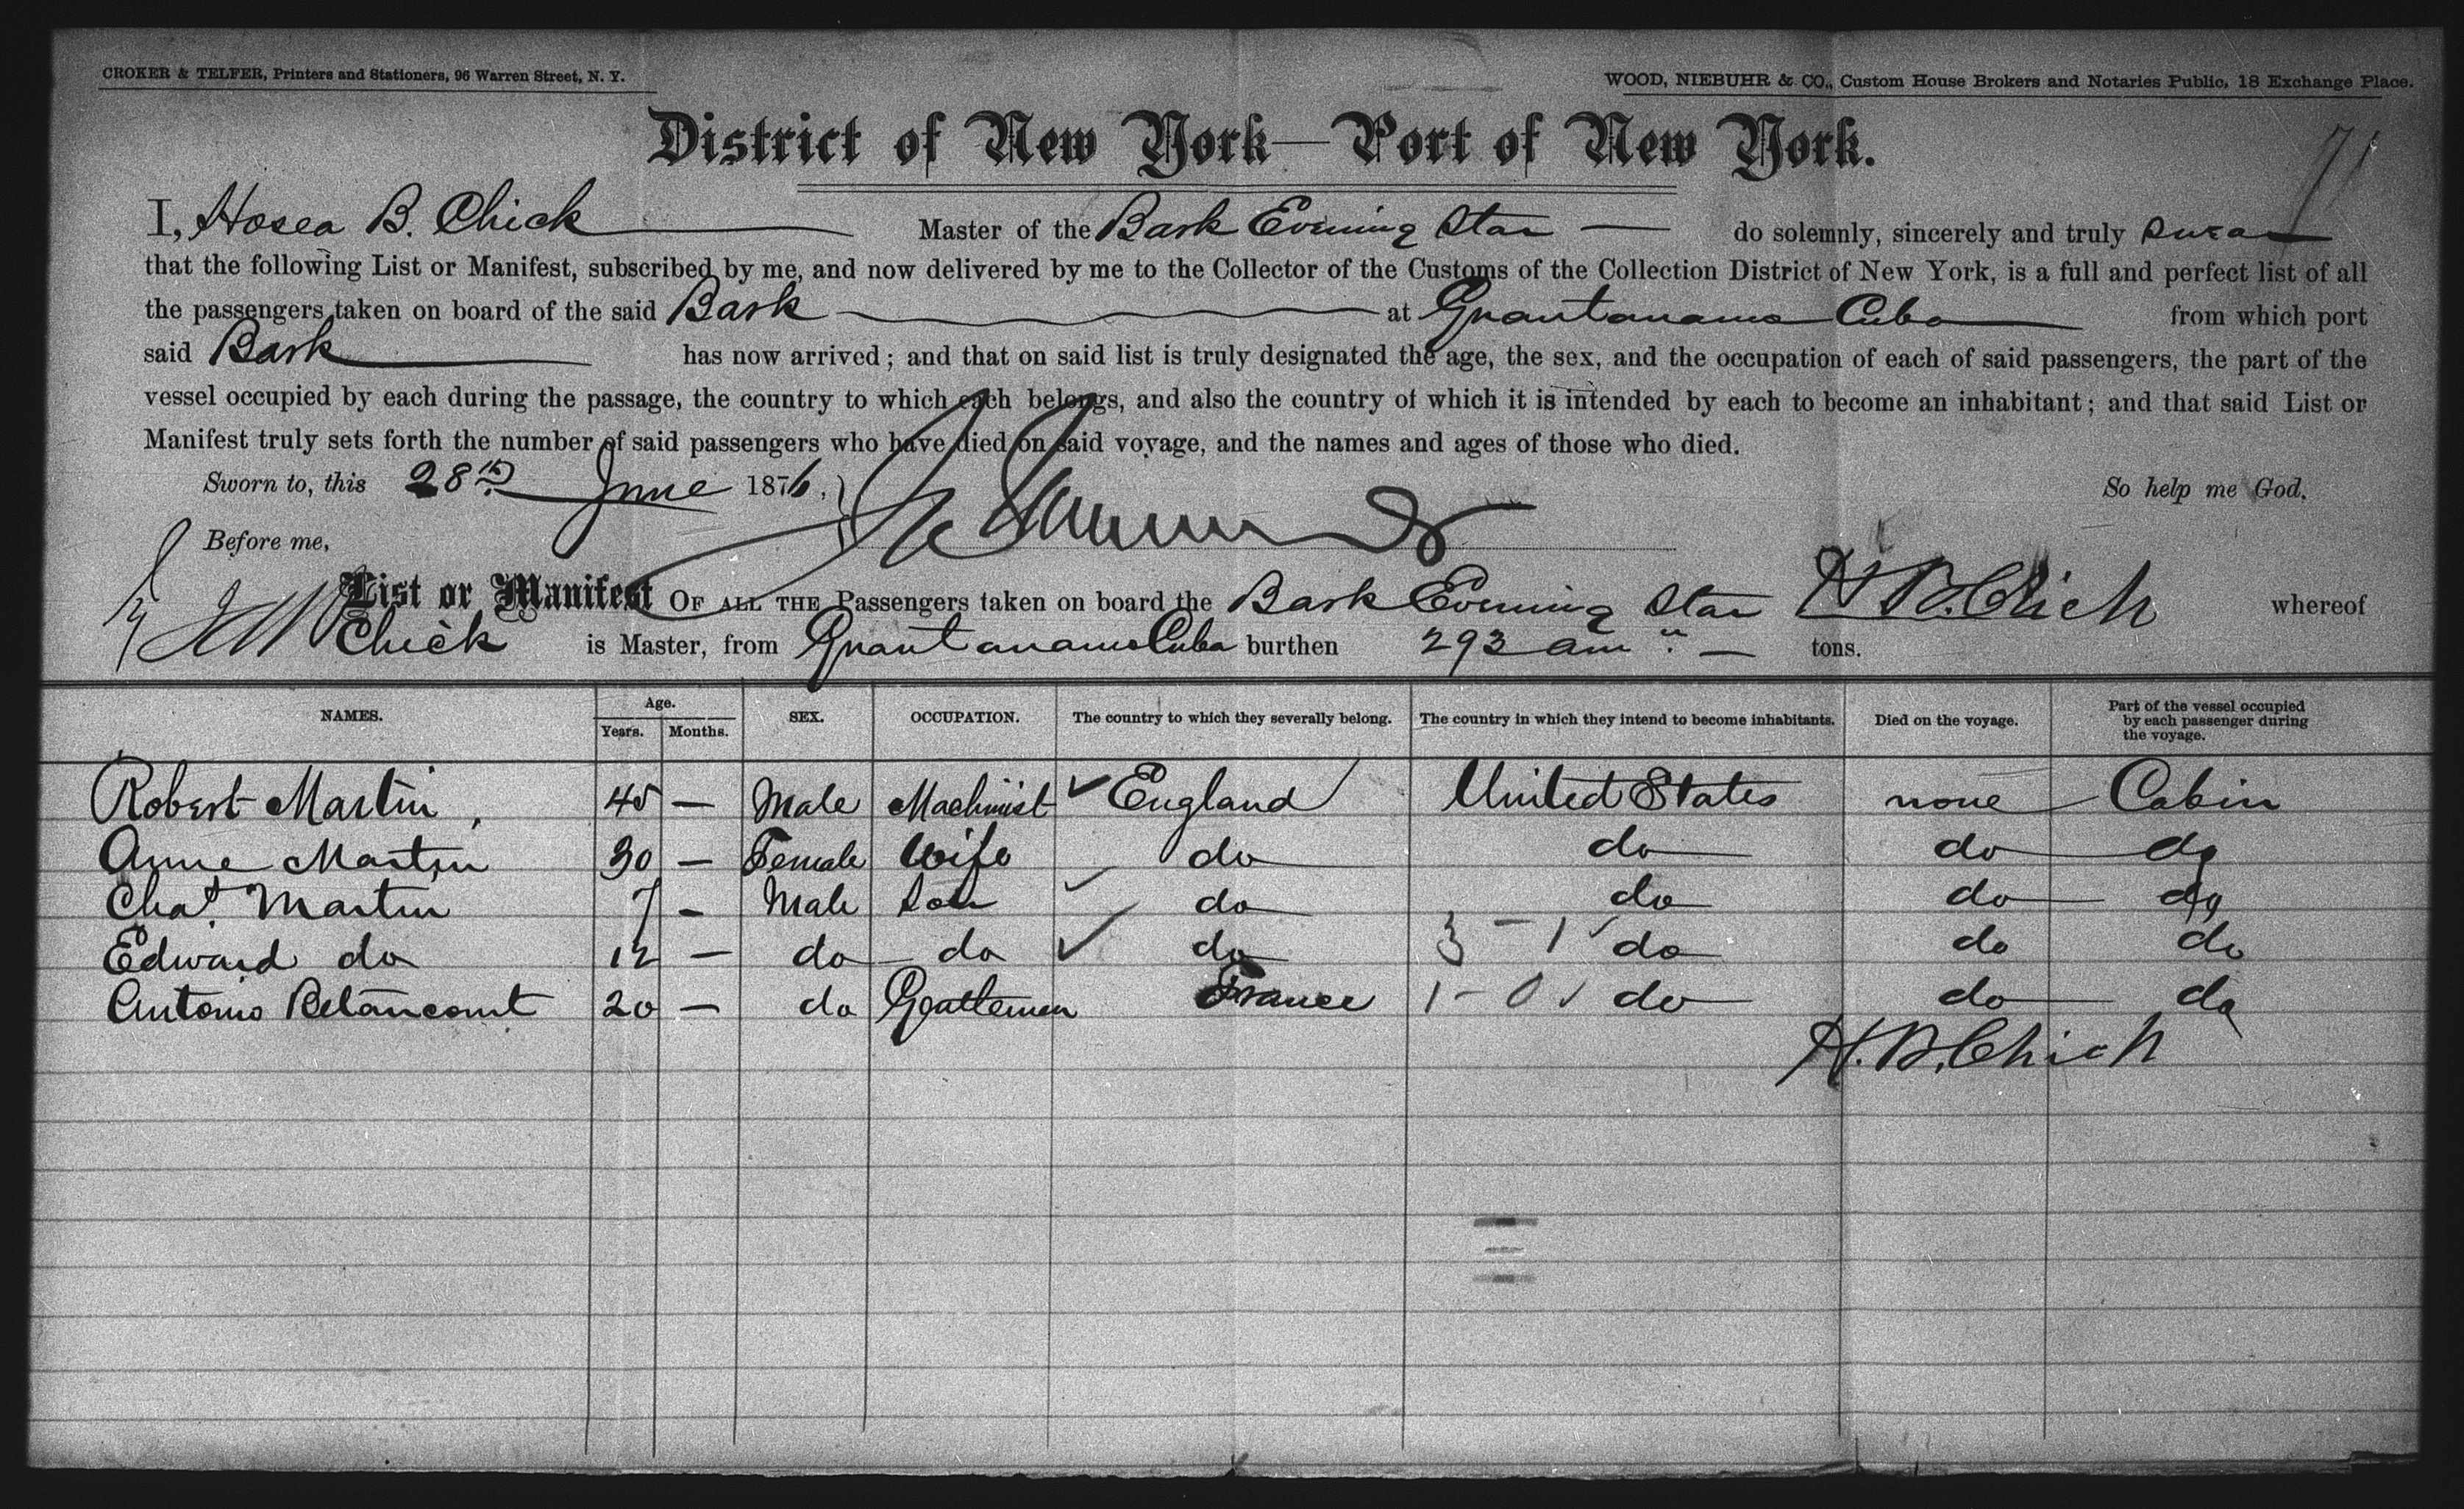 CROKER & TELFER, Printers and Stationers, 96 Warren Street, N. Y.
WOOD, NIEBUHR & CO., Custom House Brokers and Notaries Public, 18 Exchange Place.
District of New York—Port of New York.
71
I, Hosea B. Chick Master of the Bark Evening Star do solemnly, sincerely and truly swear
that the following List or Manifest, subscribed by me, and now delivered by me to the Collector of the Customs of the Collection District of New York, is a full and perfect list of all
the passengers taken on board of the said Bark at Guantanamo Cuba from which port
said Bark has now arrived; and that on said list is truly designated the age, the sex, and the occupation of each of said passengers, the part of the
vessel occupied by each during the passage, the country to which each belongs, and also the country of which it is intended by each to become an inhabitant; and that said List or
Manifest truly sets forth the number of said passengers who have died on said voyage, and the names and ages of those who died.
Sworn to, this 28th June 1876. So help me God.
Before me,
List or Manifest OF ALL THE Passengers taken on board the Bark Evening Star H B. Chick whereof
Chick is Master, from Guantanamo Cuba burthen 293 am tons.
NAMES. Age. Years. Months. SEX. OCCUPATION. The country to which they severally belong. The country in which they intend to become inhabitants. Died on the voyage. Part of the vessel occupied by each passenger during the voyage.
Robert Martin, 45 — Male Machinist ✓ England United States none Cabin
Anne Martin 30 — Female Wife do do do do
Chas. Martin 7 — Male Son ✓ do do do do
Edward do 12 — do do ✓ do 3 - 1 ✓ do do do
Antonio Betancourt 20 — do Gentleman France 1 - 0 ✓ do do do
H. B. Chick